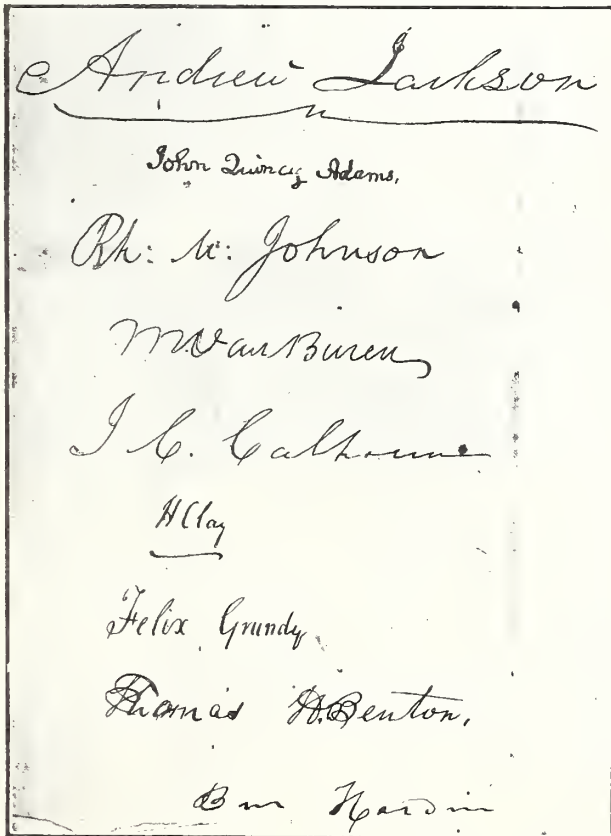 Andrew Jackson
John Quincy Adams.
Rh: M: Johnson
M Van Buren
J C. Calhoun
H Clay
Felix Grundy
Thomas H. Benton.
Ben Hardin